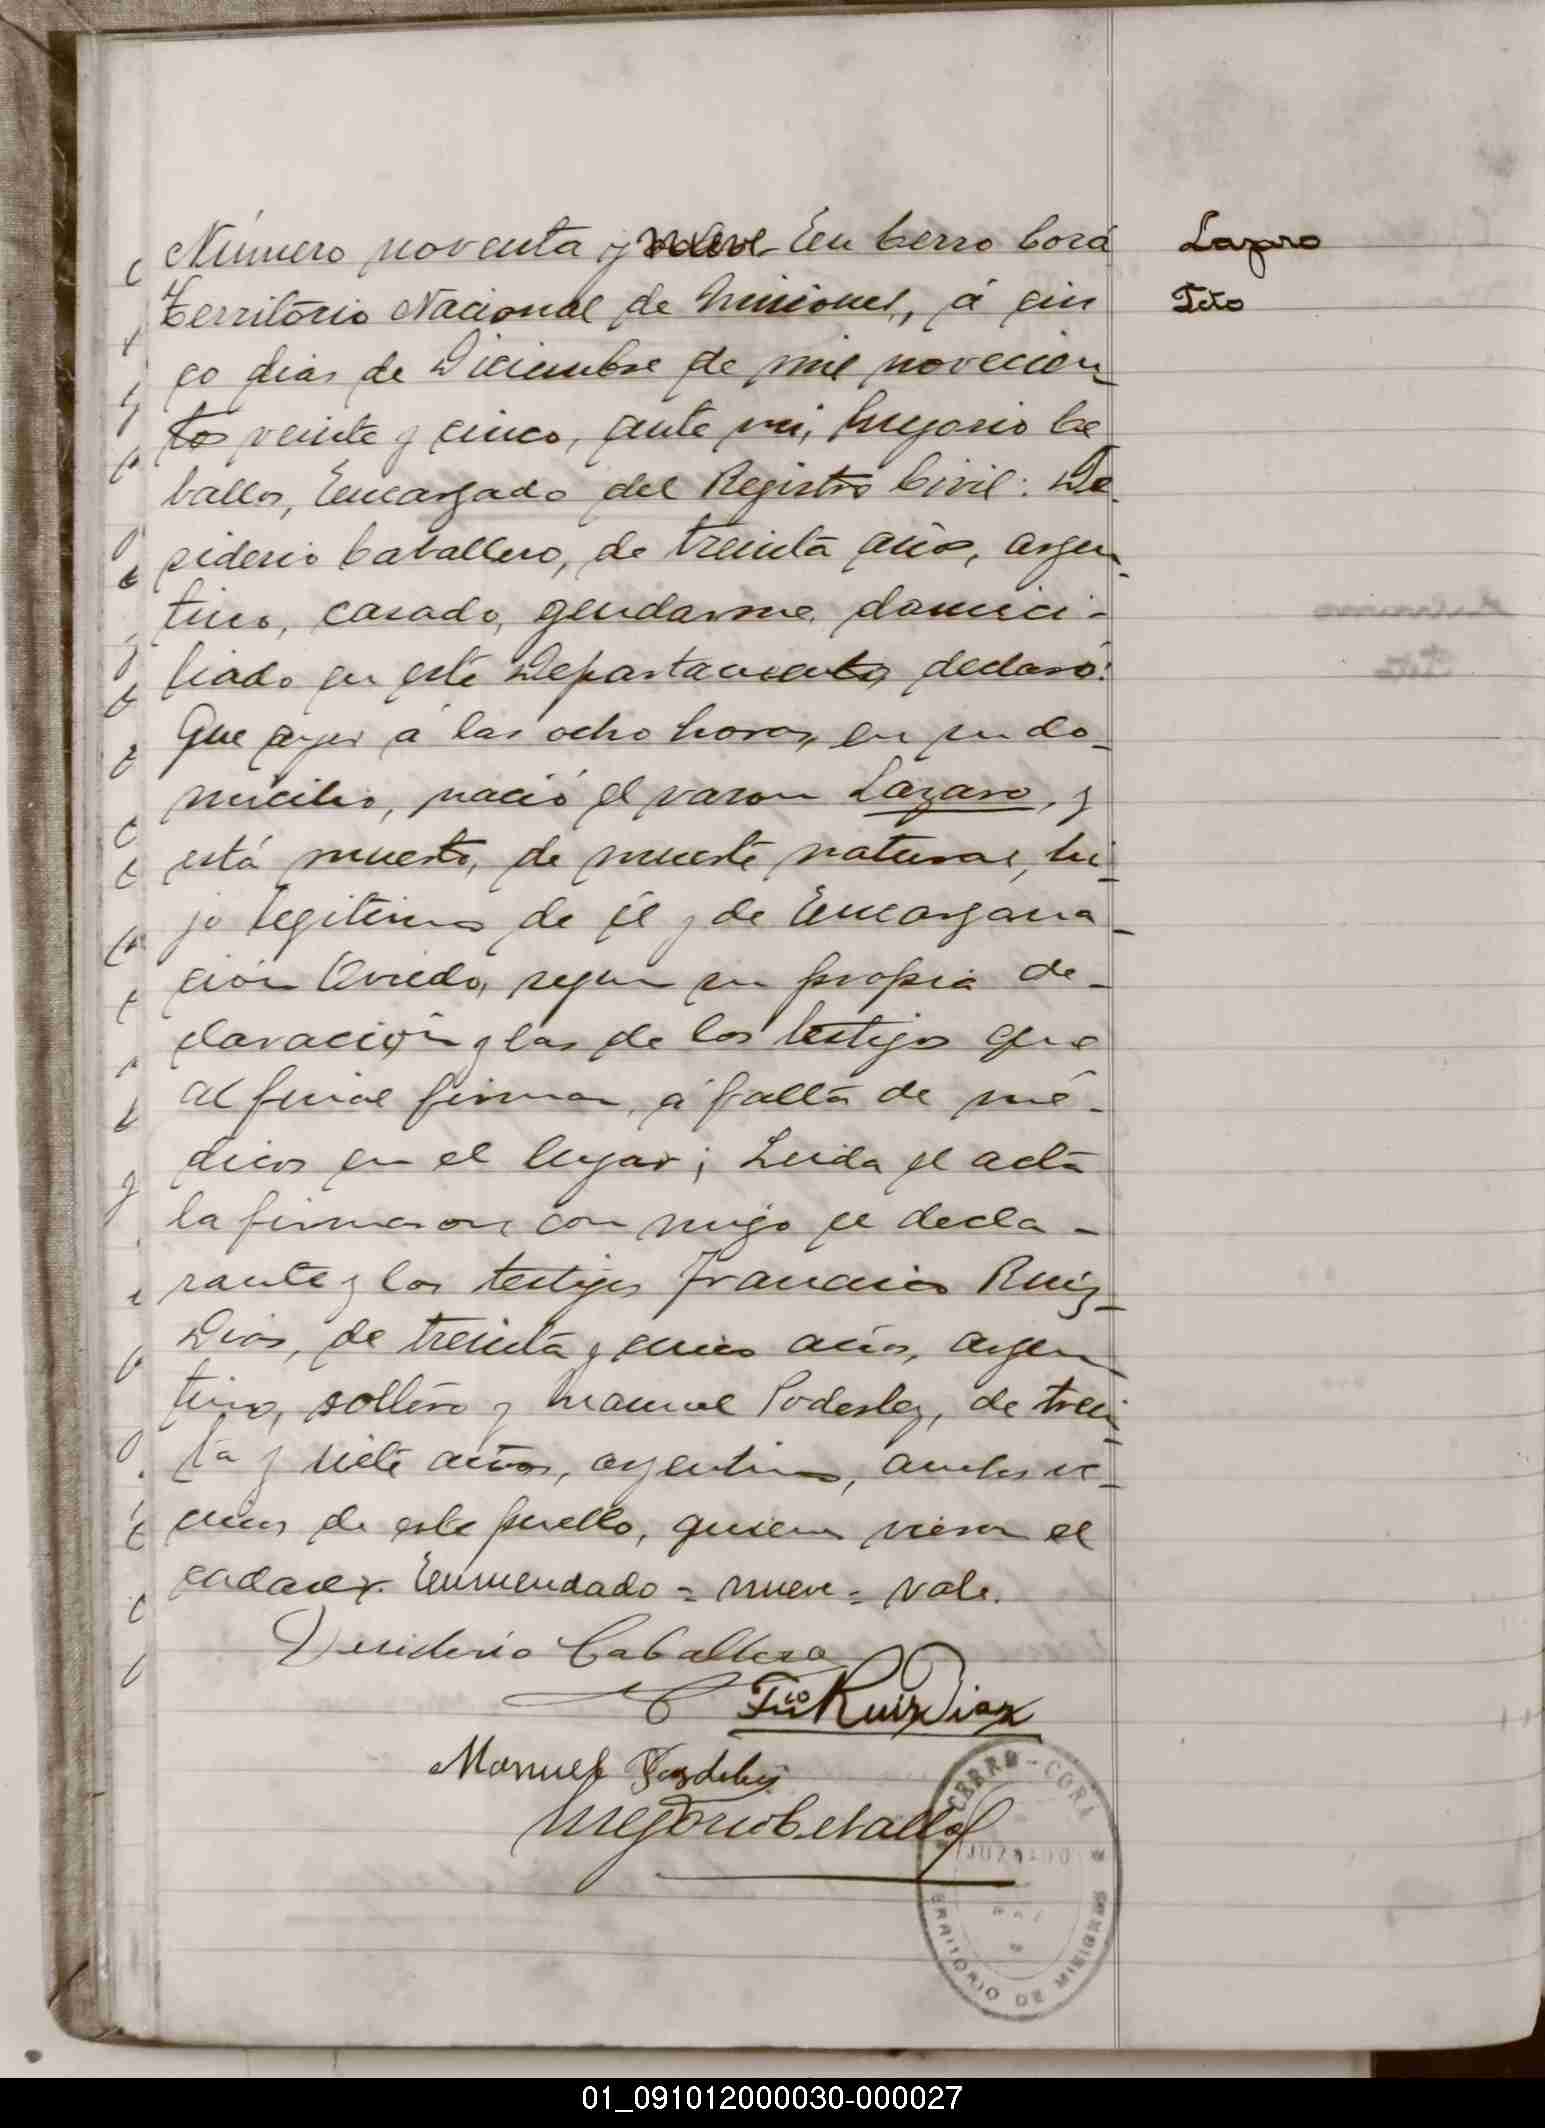 Número noventa y nueve En Cerro Corá
Territorio Nacional de Misiones, á cin
co dias de Diciembre de mil novecien
tos veinte y cinco, ante mi, Gregorio Ce
ballos, Encargado del Registro Civil: De
siderio Caballero, de treinta años, argen
tino, casado, gendarme, domici-
liado en este Departamento, declaró:
Que ayer á las ocho horas, en su do-
micilio, nació el varon Lazaro, y
está muerto, de muerte natural, hi-
jo legitimo de él y de Encargana-
ción Oviedo, segun su propia de-
claración y las de los testigos que
al final firman, á falta de mé-
dicos en el lugar; Leida el acta
la firmaron con migo el decla-
rante y los testigos Francisco Ruiz
Dias, de treinta y cinco años, argen
tino, soltero y Manuel Podesley, de trein
ta y siete años, argentino, ambos ve-
cinos de este pueblo, quienes vieron el
cadaver. Enmendado = nueve = vale.
Desiderio Caballero
Fco Ruiz Diaz
Manuel
Gregorio Ceballos
CERRO-CORÁ
JUZGADO
TERRITORIO DE MISIONES
Lazaro
Feto
01_091012000030-000027